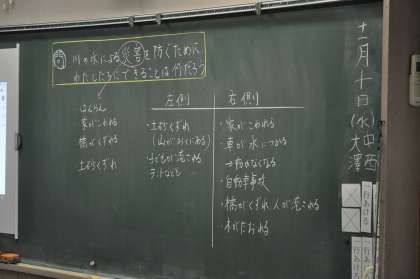 川の水による災害を防ぐために
わたしたちにできることは何だろう
はんらん
家がこわれる
橋がくずれる
土砂くずれ
左側
・土砂くずれ
(山がおくにある)
・子どもが流される
テントなども
右側
・家がこわれる
・車が水につかる
→動かなくなる
・自動車事故
・橋がくずれ人が流される
・木がたおれる
十一月十日(水)
中西
大澤